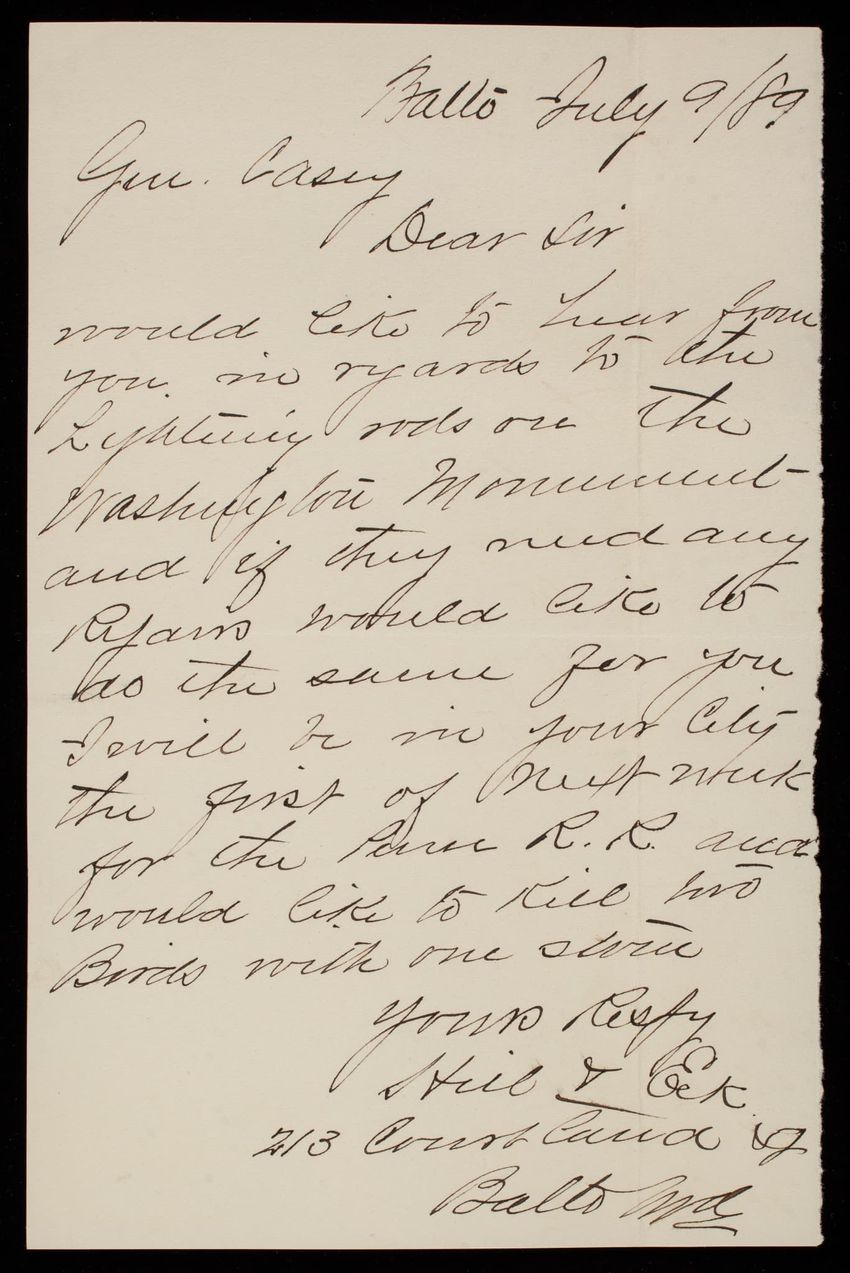 Balto July 9/89
Gen. Casey
Dear Sir
would like to hear from
you in regards to the
Lightning rods on the
Washington Monument
and if they need any
Repairs would like to
do the same for you
I will be in your City
the first of next week
for the Penn R. R. and
would like to Kill two
Birds with one stone
Yours Respy
Hill & Eck
213 Courtland St
Balto Md